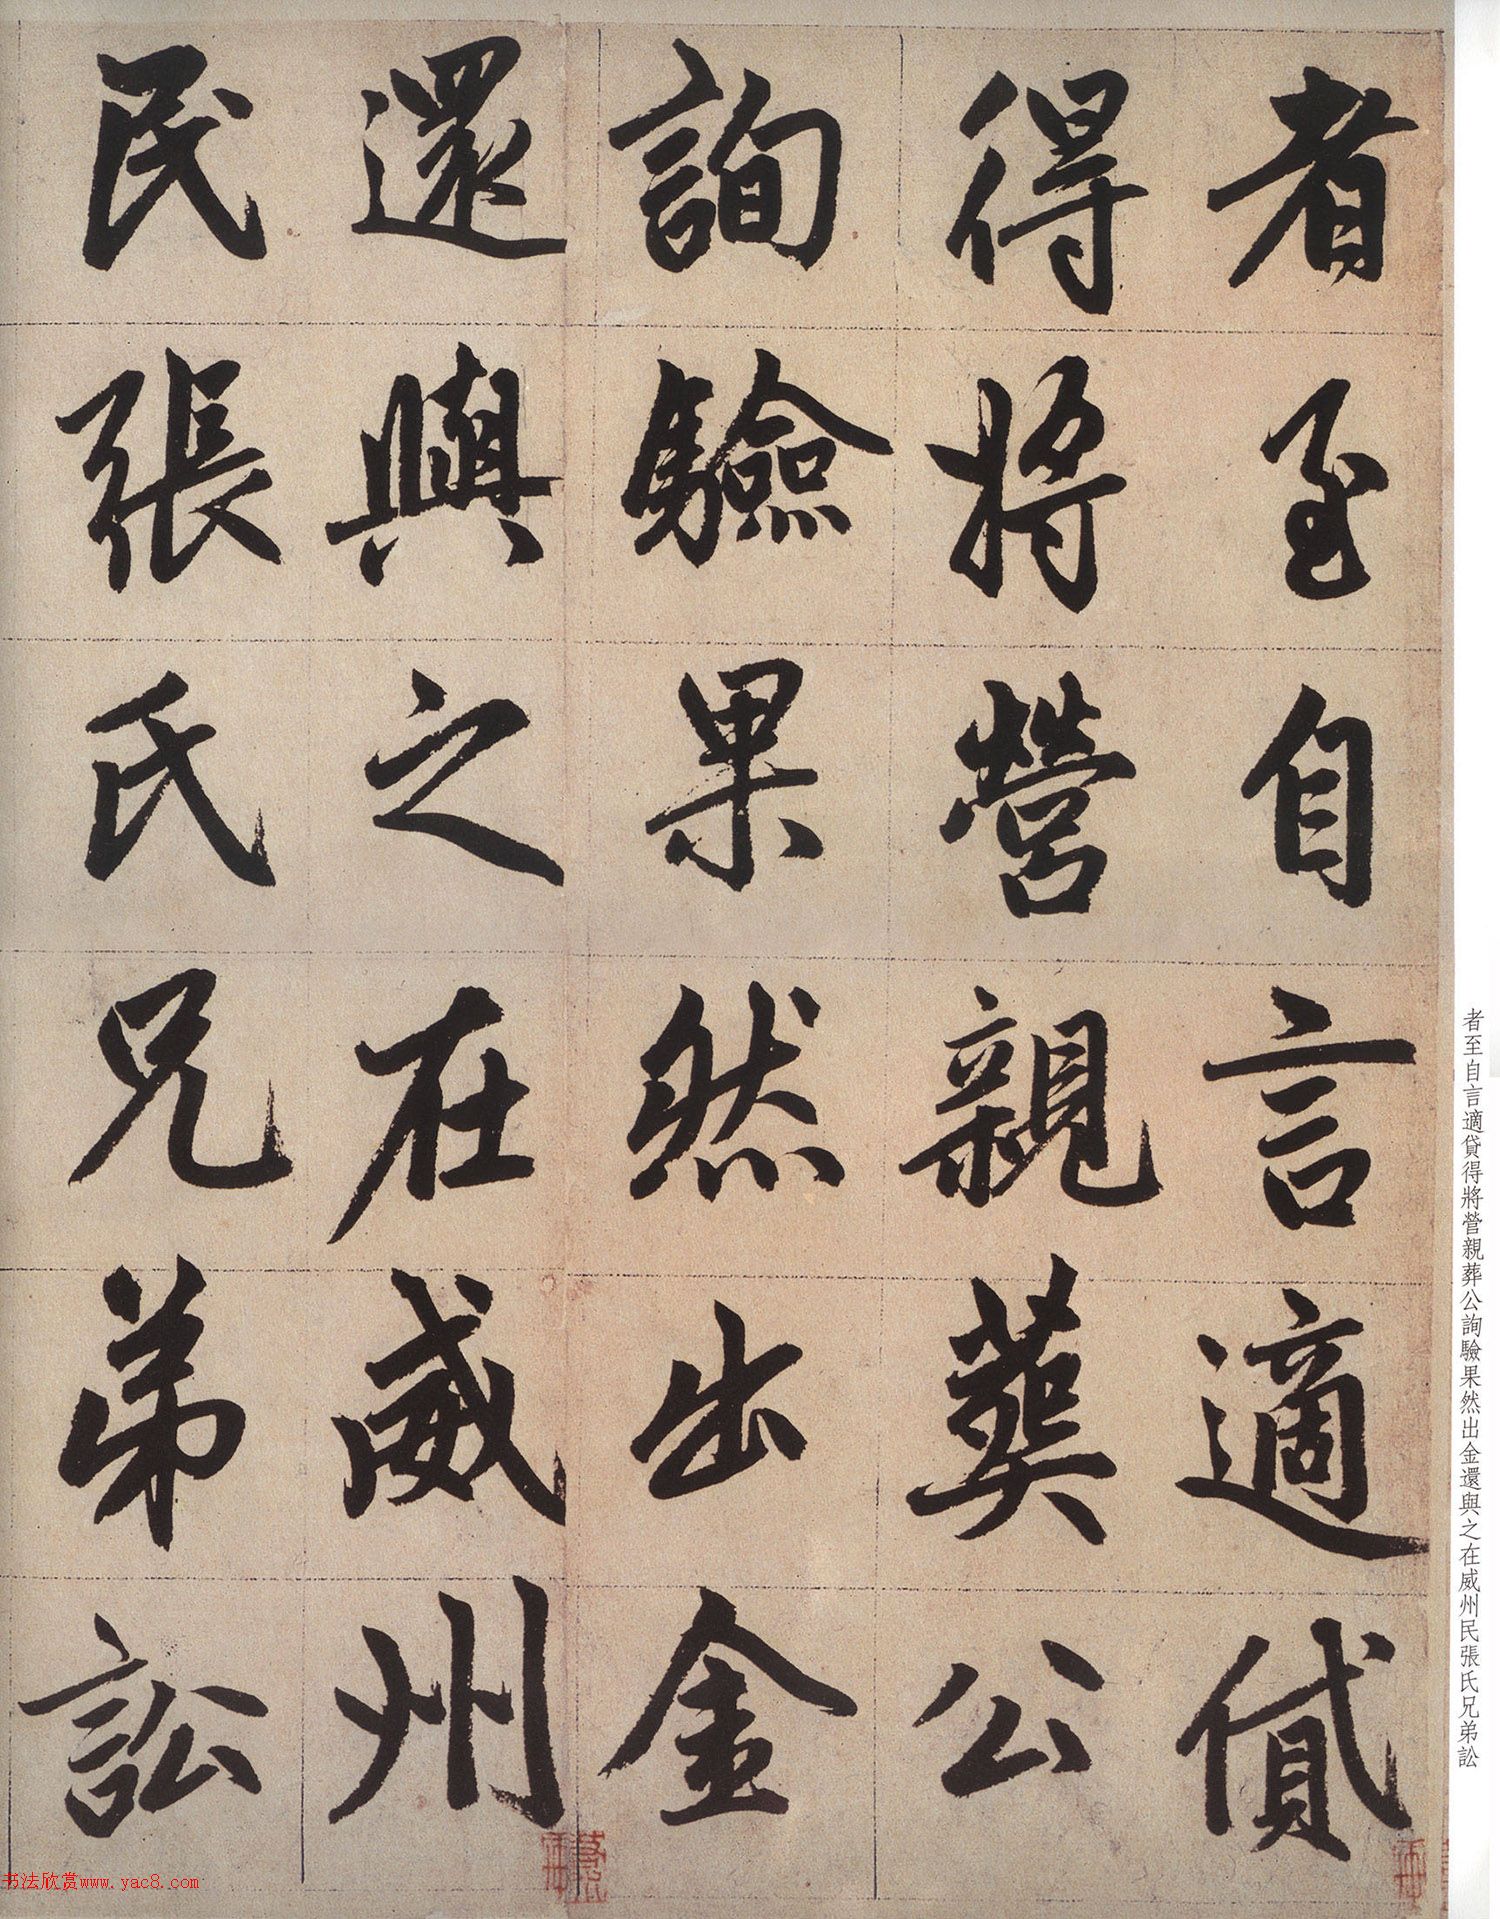 者至自言適貸
得將營親葬公
詢驗果然出金
還與之在威州
民張氏兄弟訟
者至自言適貸得將營親葬公詢驗果然出金還與之在威州民張氏兄弟訟
书法欣赏www.yac8.com